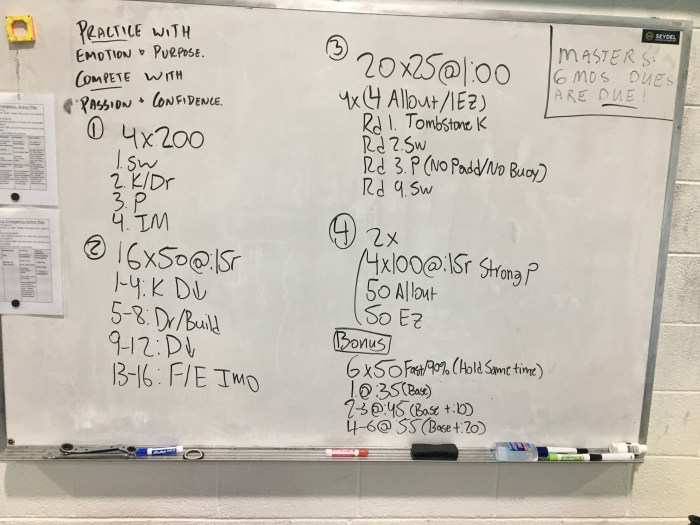 PRACTICE WITH
EMOTION & PURPOSE.
COMPETE WITH
PASSION + CONFIDENCE.
① 4x200
1. SW
2. K/Dr
3. P
4. IM
② 16x50@:15r
1-4: K D↓
5-8: Dr/Build
9-12: D↓
13-16: F/E IMO
③ 20x25@1:00
4x(4 Allout/1EZ)
Rd 1. Tombstone K
Rd 2. SW
Rd 3. P (No Padd/No Buoy)
Rd 4. SW
④ 2x
4x100@:15r Strong P
50 Allout
50 EZ
Bonus
6x50 Fast/90% (Hold Same time)
1@:35 (Base)
2-3@:45 (Base +:10)
4-6@:55 (Base+:20)
MASTERS:
6 MOS DUES
ARE DUE!
SEYDEL